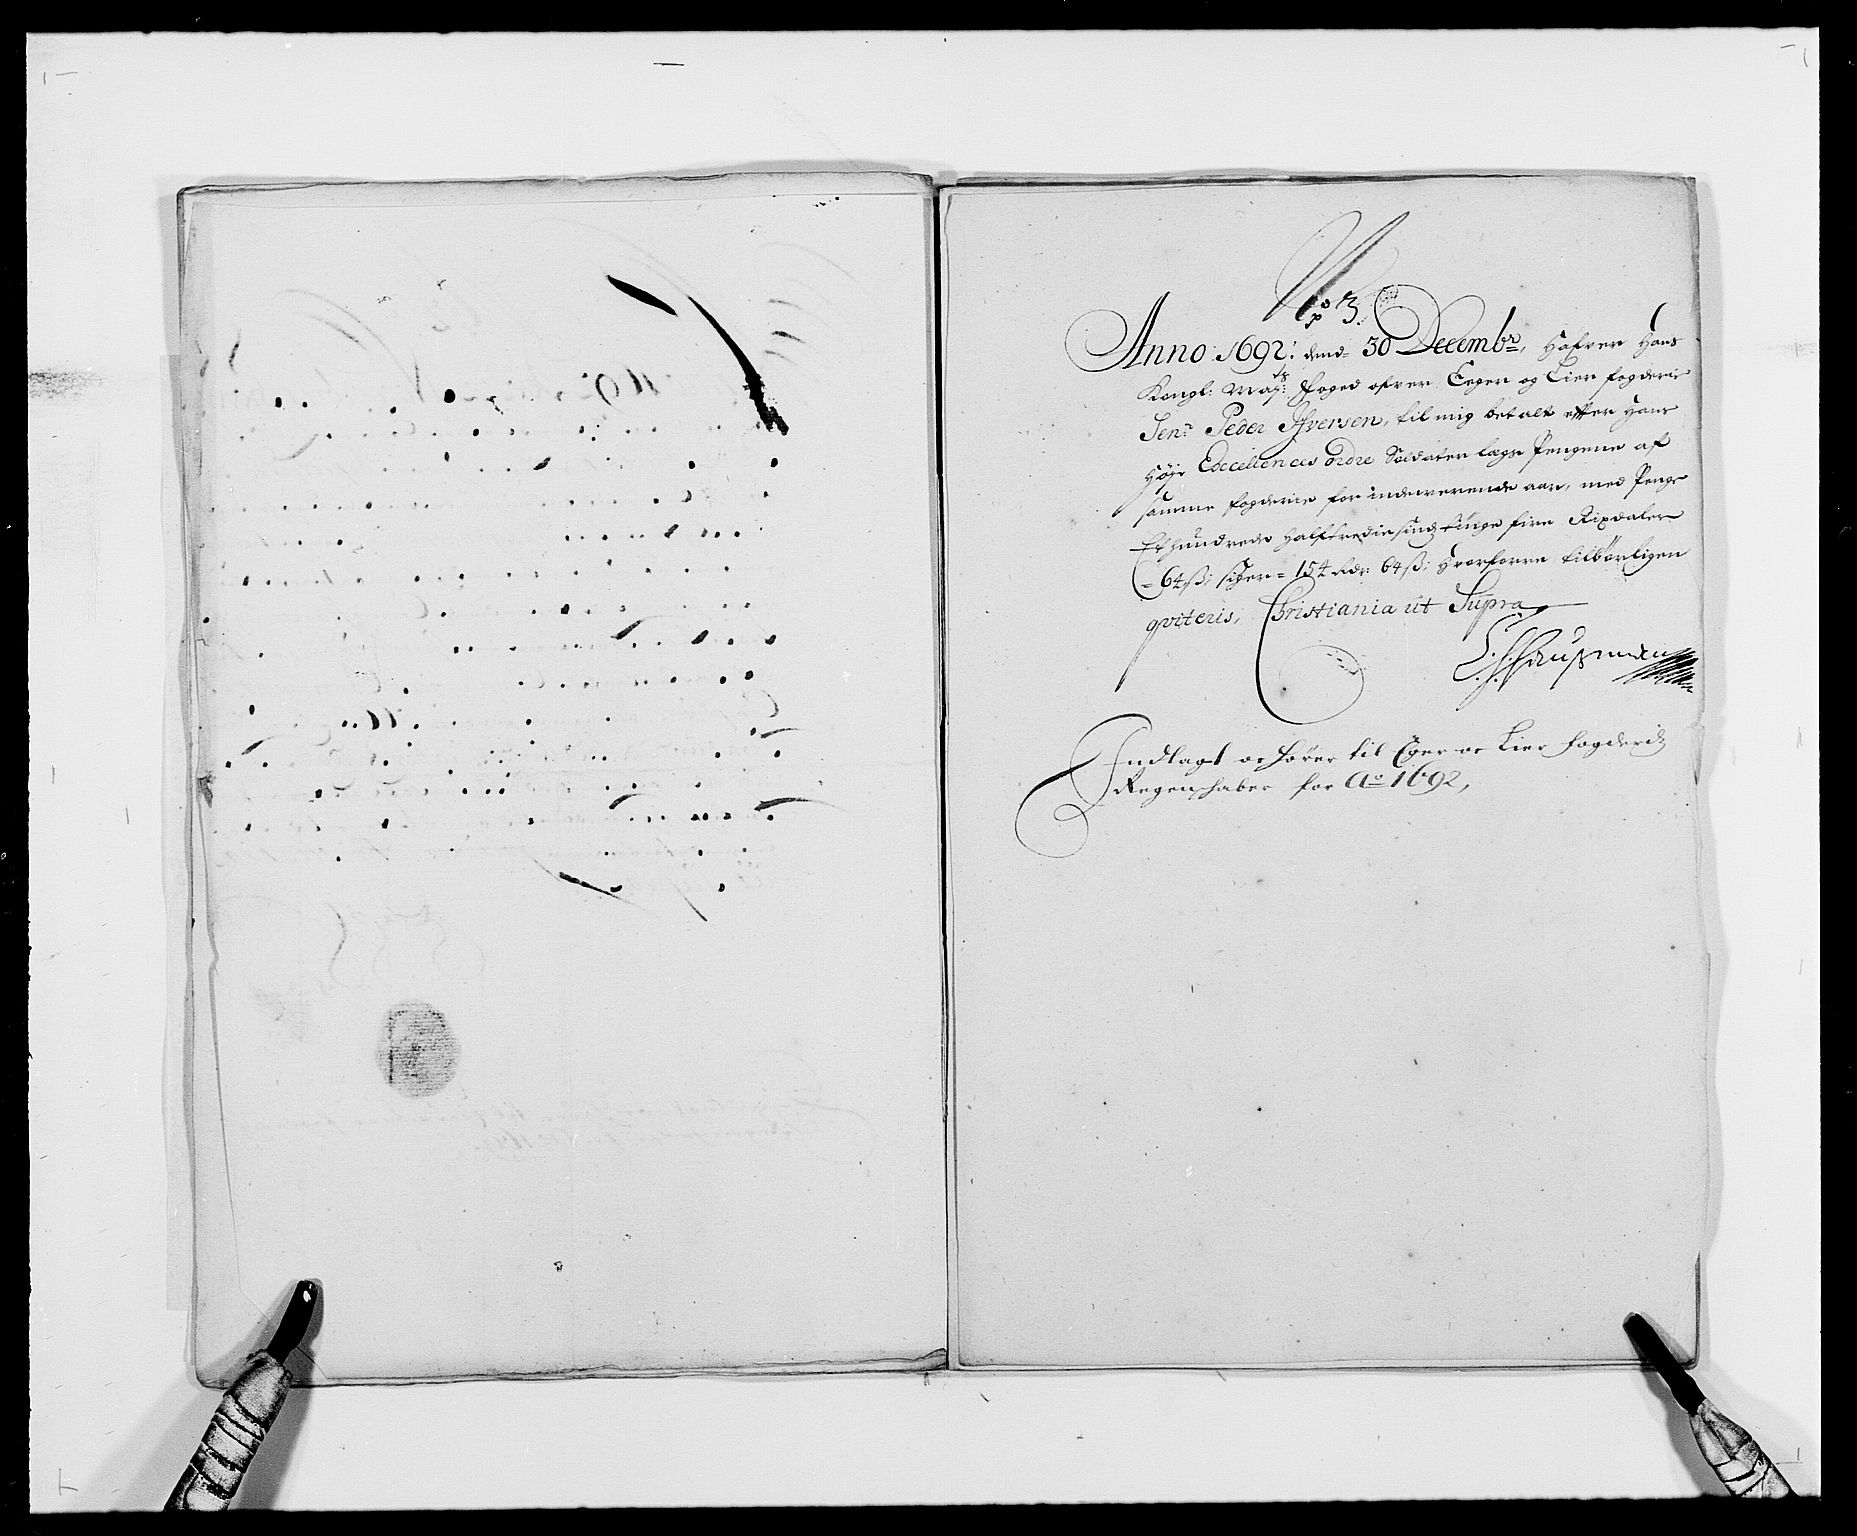 No 3.
Anno 1692: dend 30 Decembr, Hafver Hans
Kongl: Mayts: Foged ofver Eeger og Lier fogderie
Senr Peder Ifversen, til mig betalt efter Hans
Høje Edecellences ordre Soldater lægs Pengene af
samme fogderie for indeverende aar, med Penge
Et hundrede halftrediesindstiuge fire Rixdaler
64 ß; siger = 154 Rdr: 64 ß; Hvorforre tilbørligen
qviteris, Christiania ut Supra
C. H: Hausmann
Indlagt oc hører til Eger oc Lier fogderis
Regenschaber for Ao 1692,